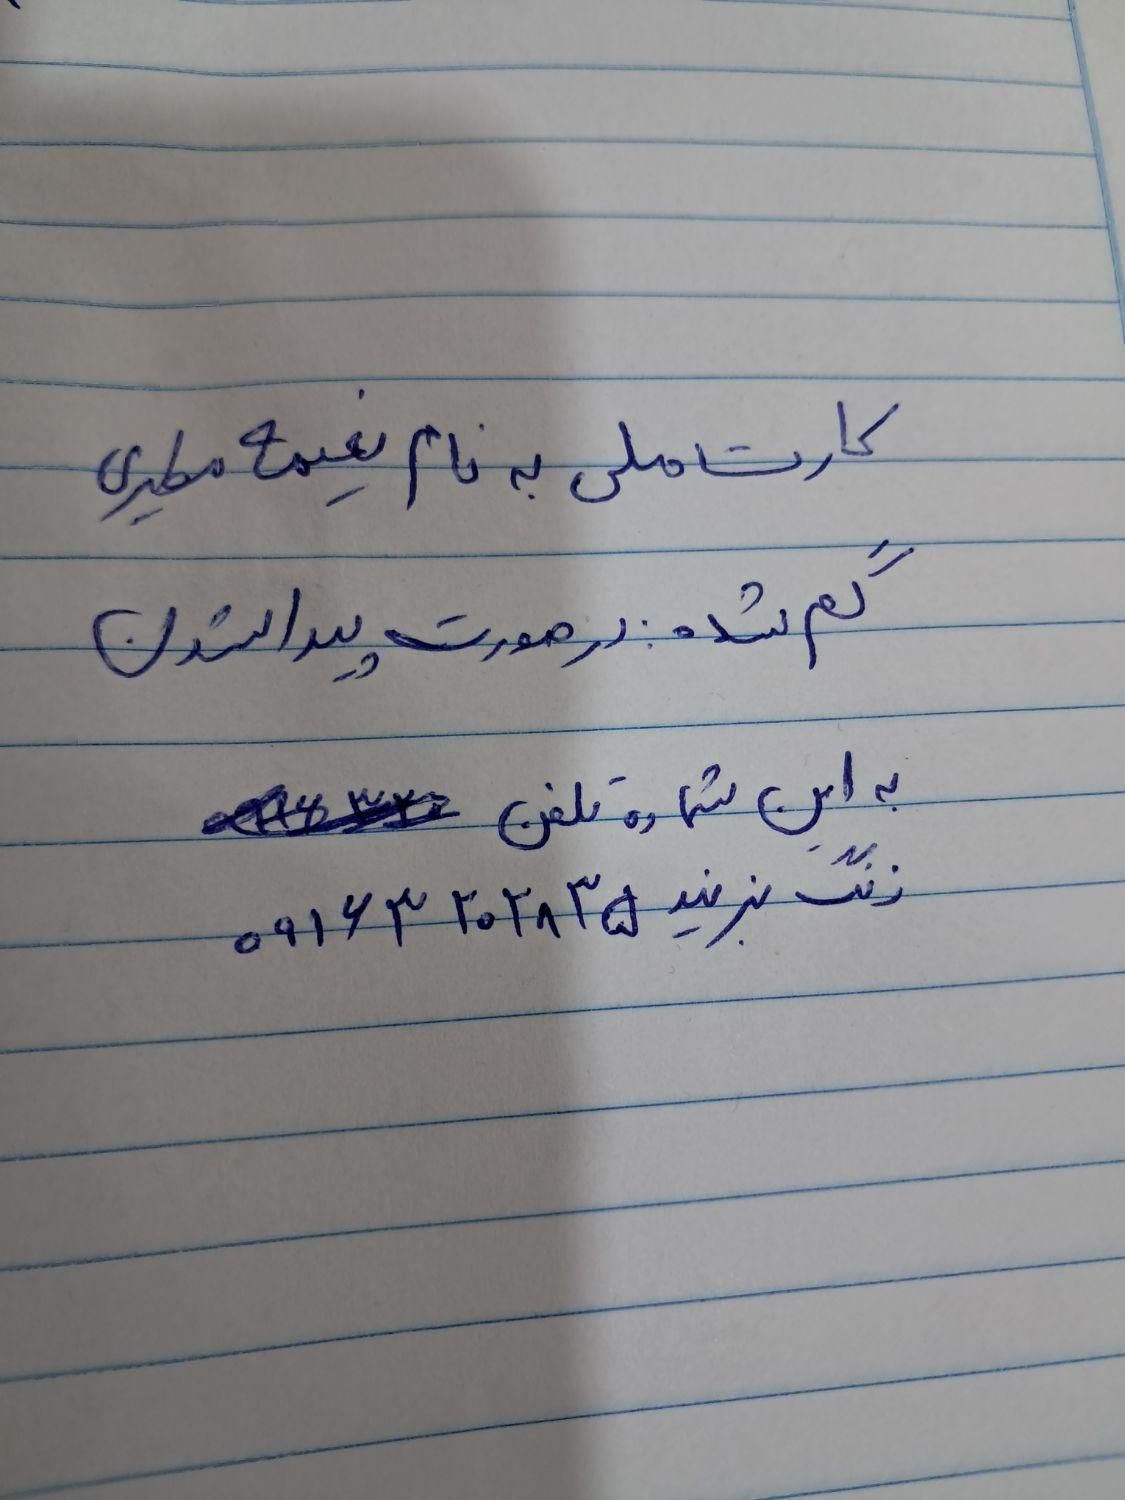 کارت ملی به نام نعیمه مطیری
گم شده . در صورت پیدا شدن
به این شماره تلفن
زنگ بزنید ۰۹۱۶۳۲۰۲۸۳۵